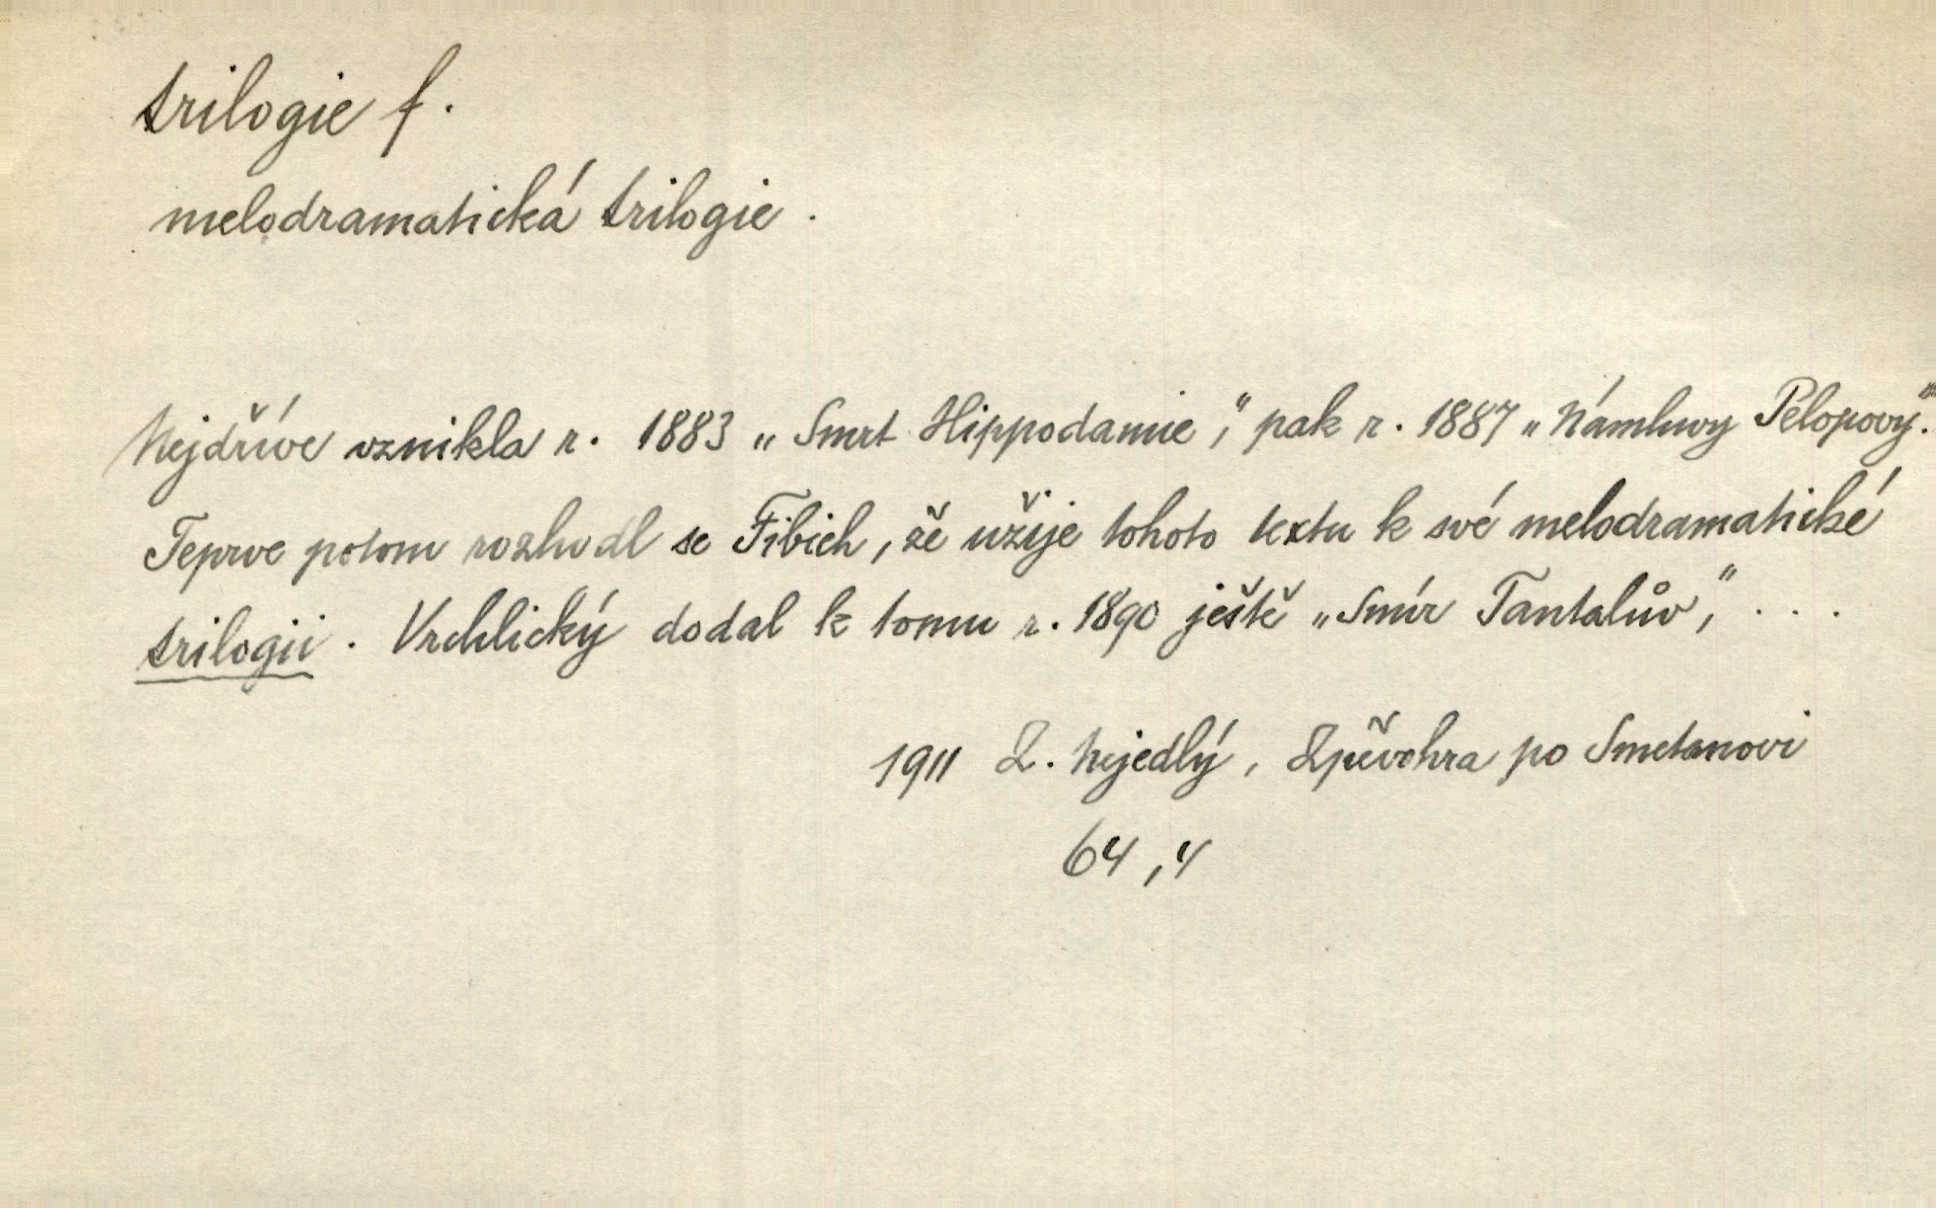 trilogie f.
melodramatická trilogie.
Nejdříve vznikla r. 1883 „Smrt Hippodamie", pak r. 1887 „Námluvy Pelopovy".
Teprve potom rozhodl se Fibich, že užije tohoto textu k své melodramatické
trilogii. Vrchlický dodal k tomu r. 1890 ještě „Smír Tantalův", ...
1911 Z. Nejedlý, Zpěvohra po Smetanovi
64,4